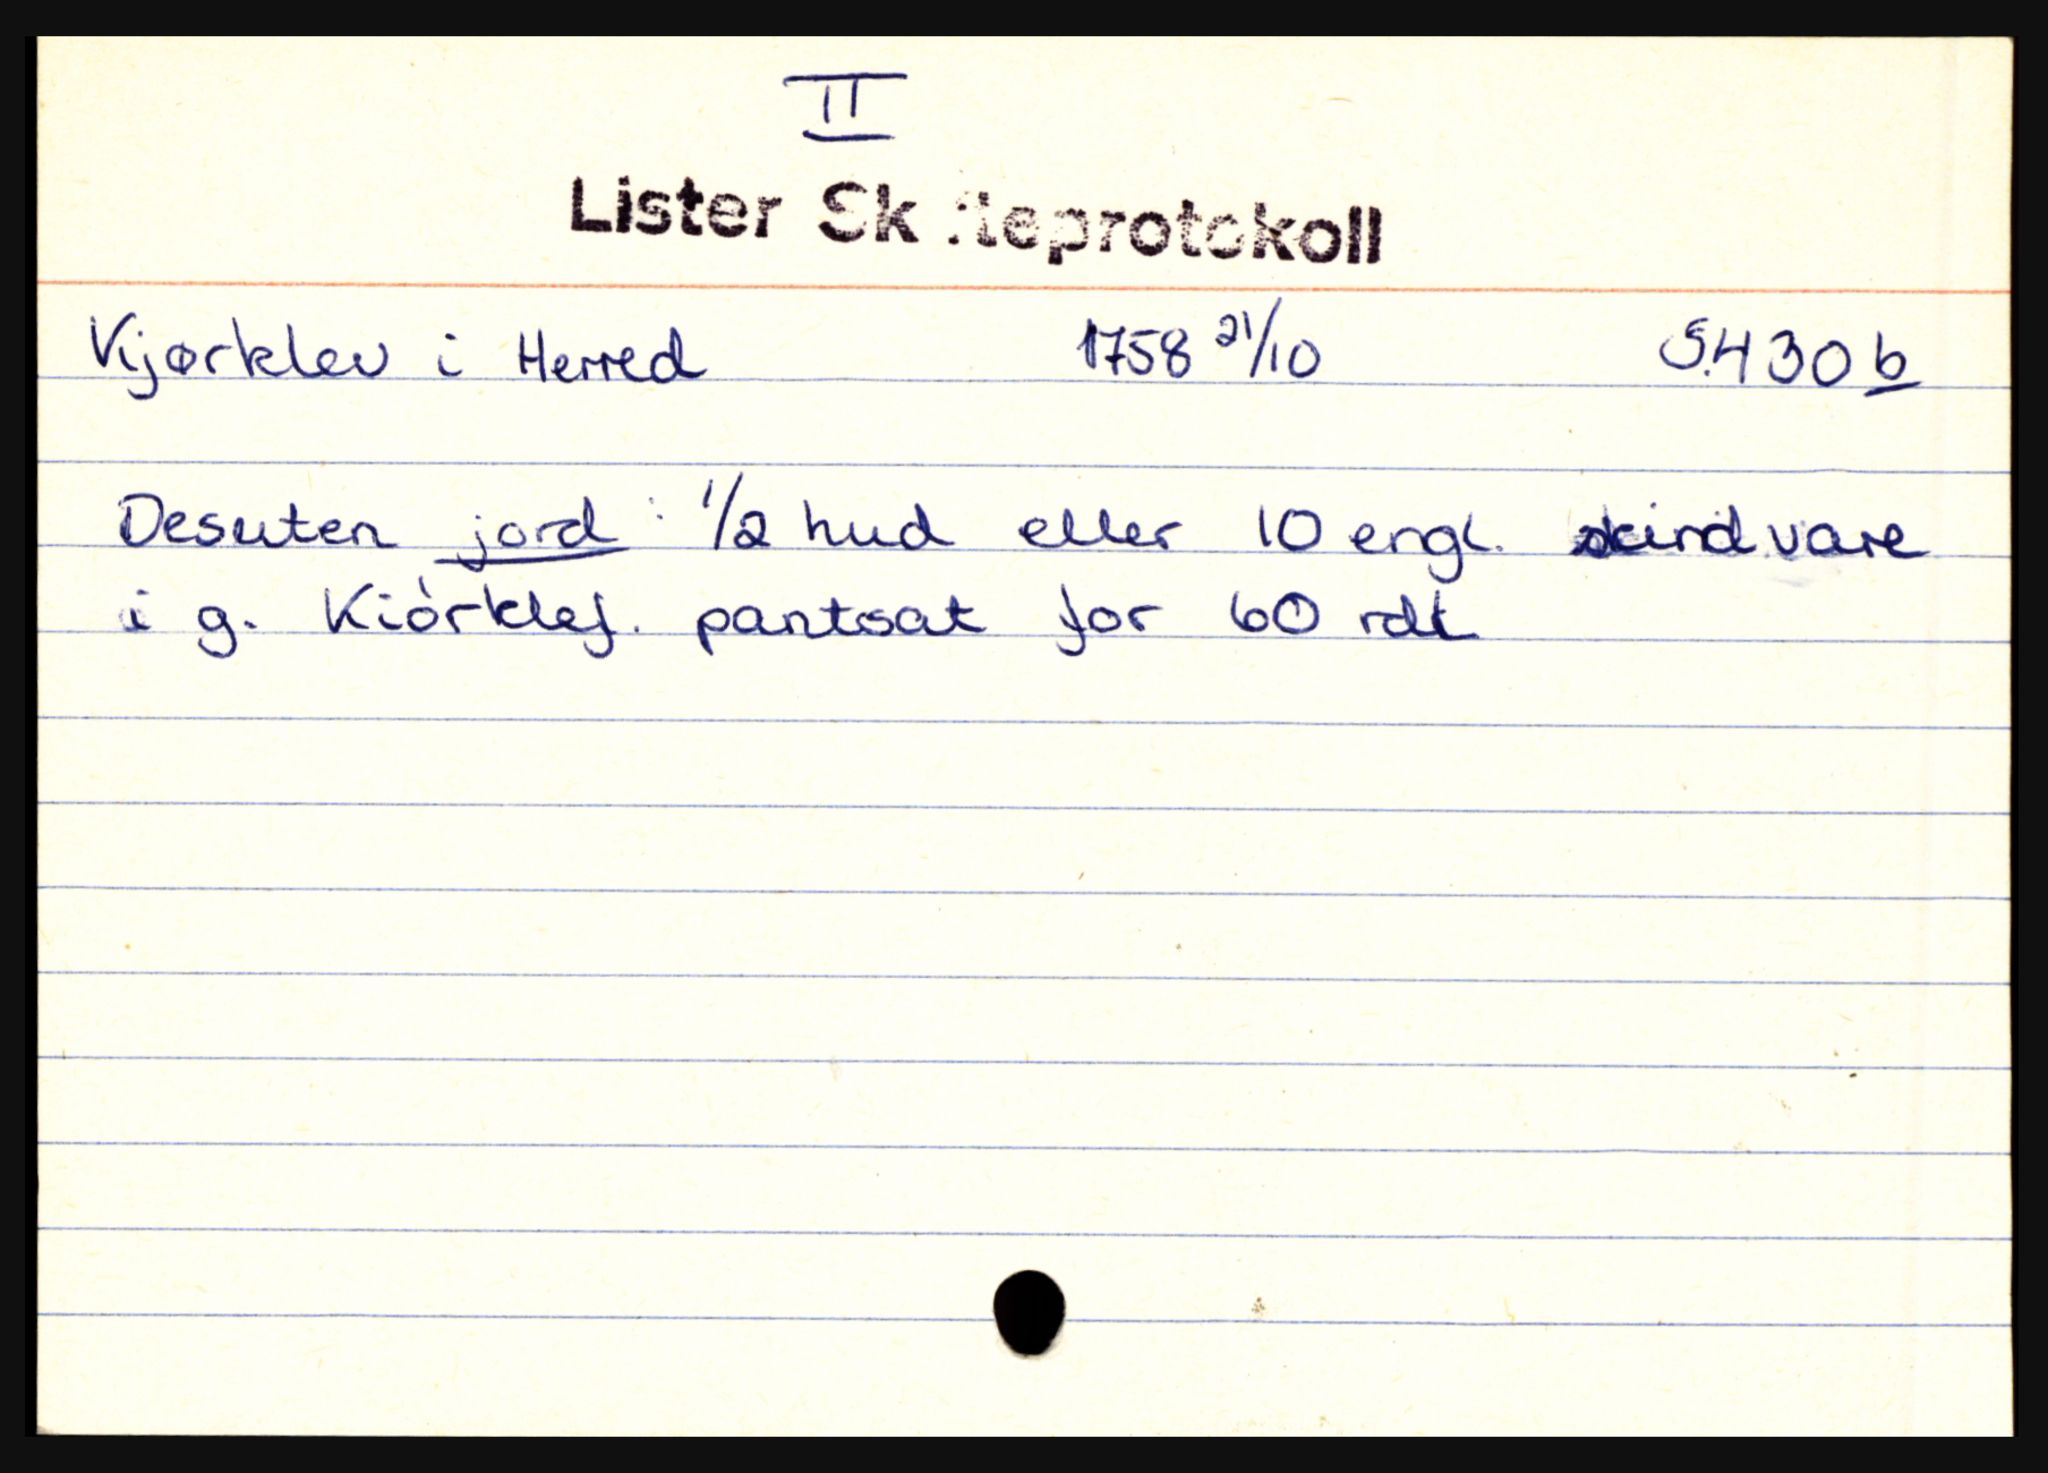 II
Lister Skifteprotokoll
Kjørklev i Herred 1758 21/10 S.430b
Desuten jord: 1/2 hud eller 10 engl. skind vare
i g. Kiórklef. pantsat for 60 rdl